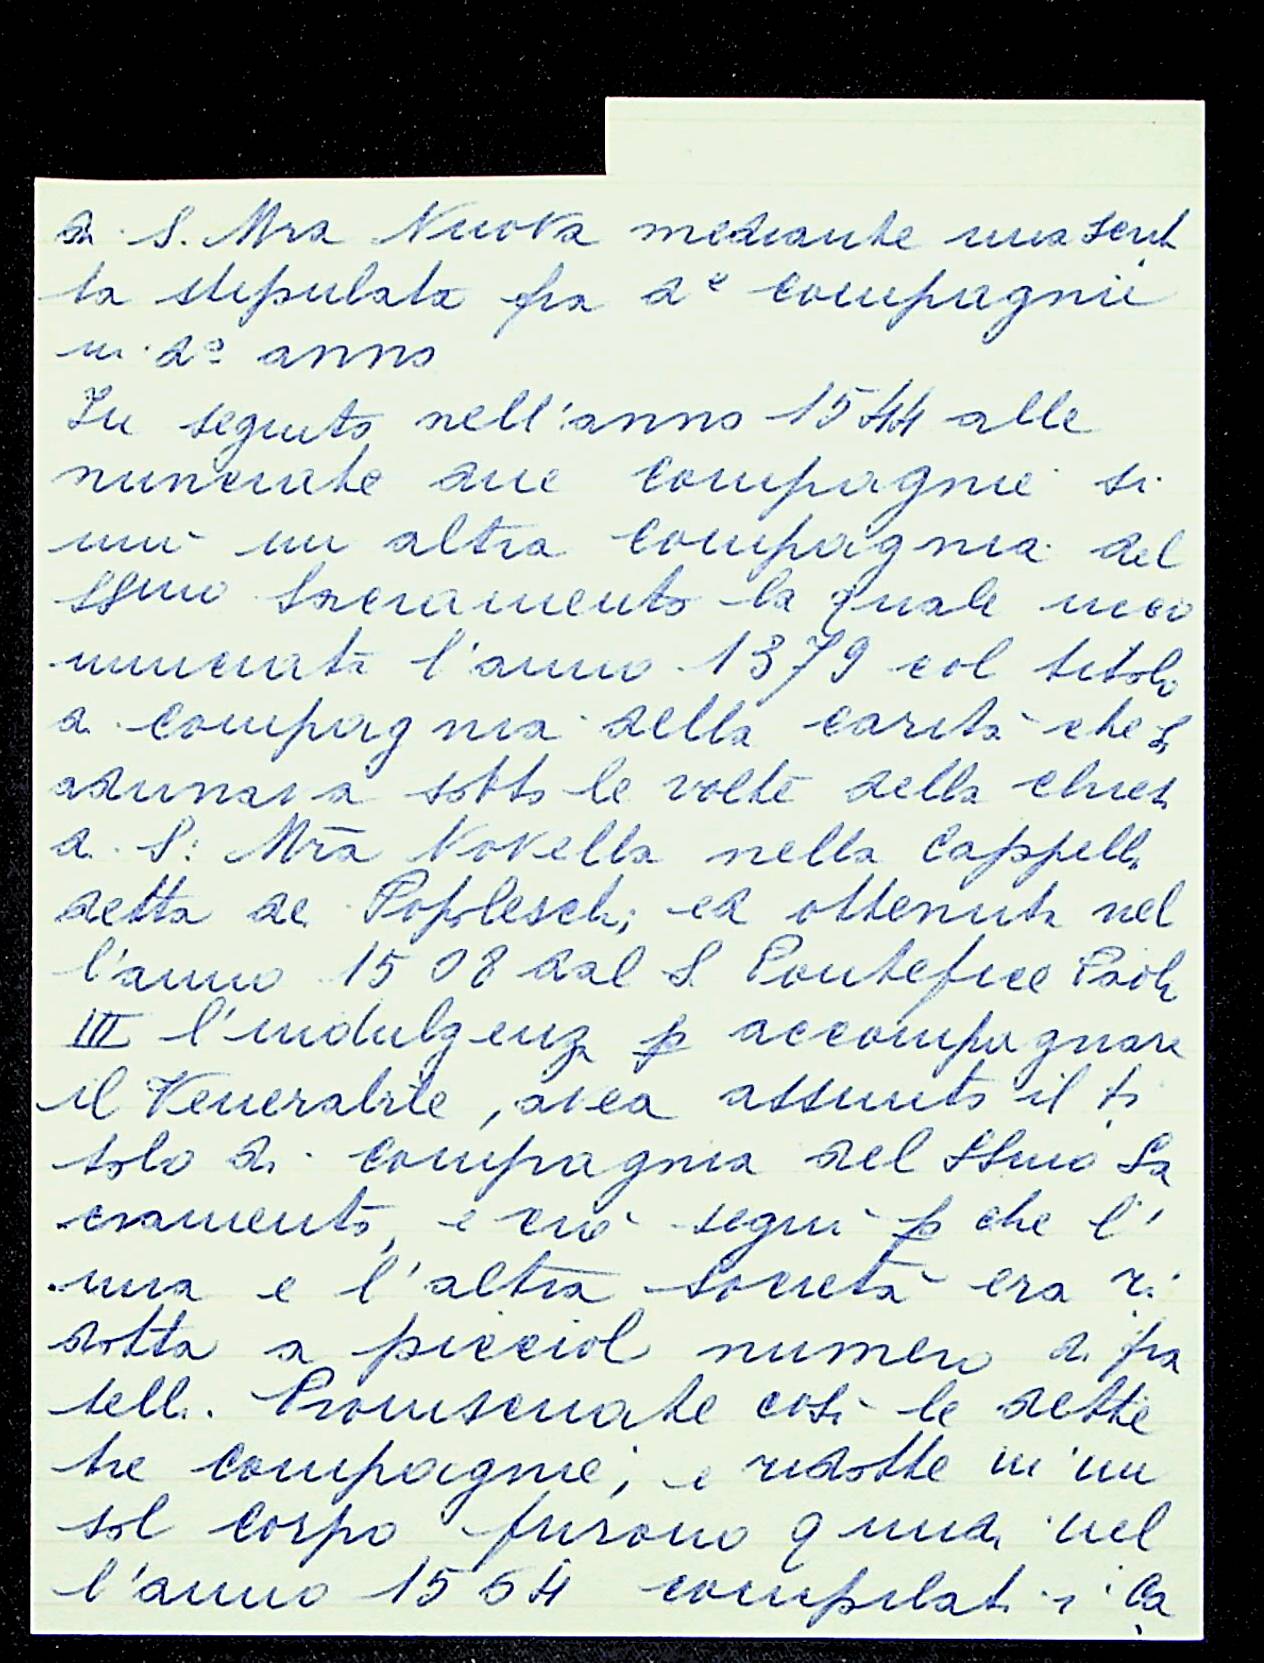 di S. Mra Nuova mediante una scrit
ta stipulata fra de compagnie
in do anno
In seguito nell'anno 1544 alle
nunciate due compagnie si
unì un altra compagnia del
SSmo Sacramento la quale inco
minciata l'anno 1379 col titolo
di compagnia della carità che si
adunava sotto le volte della chiesa
di S: Mra Novella nella Cappella
detta de Popoleschi; ed ottenuta nel
l'anno 1508 dal S. Pontefice Paolo
III l'indulgenza p accompagnare
il Venerabile, avea assunto il ti
tolo di compagnia del SSmo Sa
cramento, e ciò seguì p che l'
una e l'altra società era ri
dotta a picciol numero di fra
telli. Promiscuate così le dette
tre compagnie; e ridotte in un
sol corpo furono quindi nel
l'anno 1564 compilati i Ca